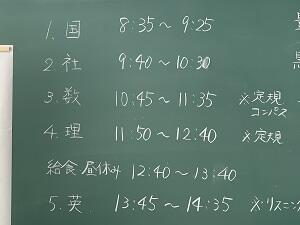 1. 国 8:35～9:25
2. 社 9:40～10:30
3. 数 10:45～11:35 ※定規
コンパス
4. 理 11:50～12:40 ※定規
給食 昼休み 12:40～13:40
5. 英 13:45～14:35 ※リスニング